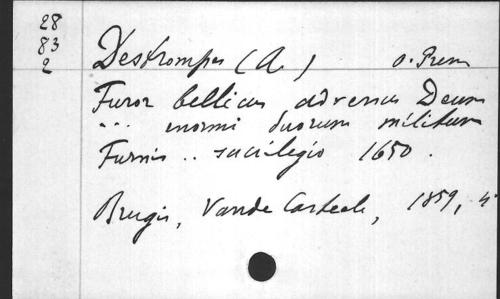 28
83
2
Destrompes (A.) O. Prem
Furor bellicus adversus Deum
... enormi duorum militum
Furnis .. sacrilegio 1650.
Brugis, Vande Casteele, 1859, 4°